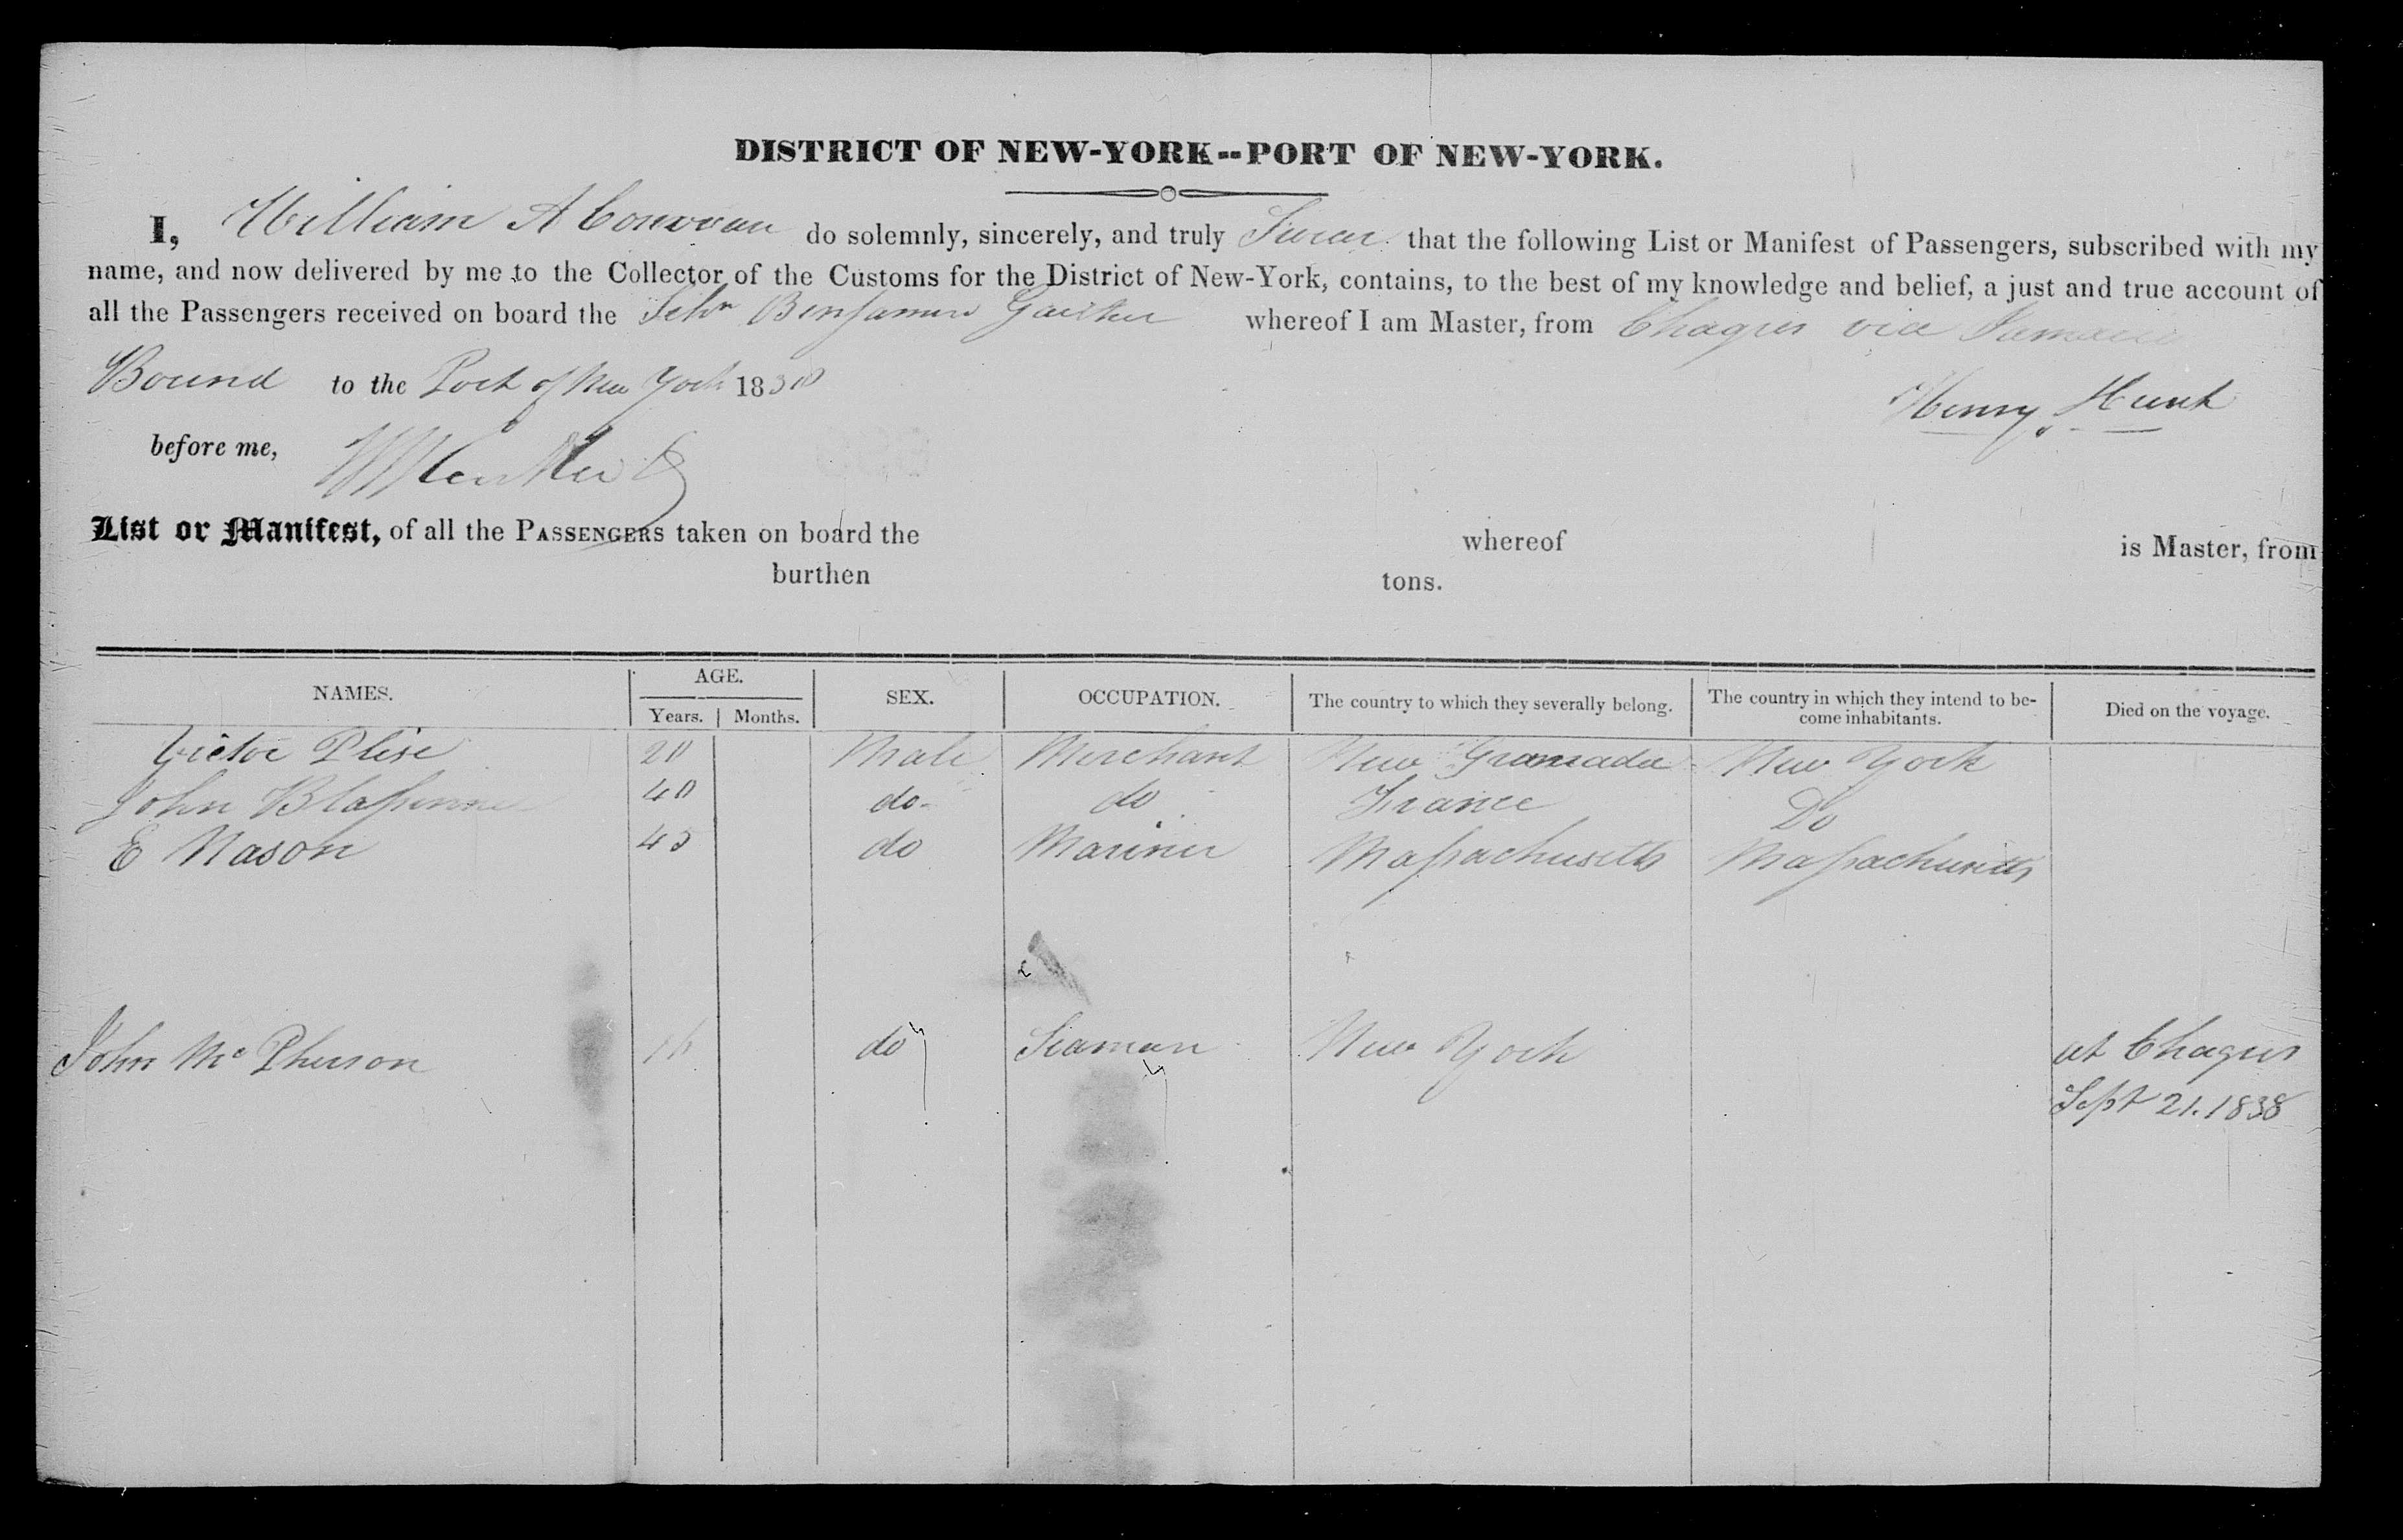 DISTRICT OF NEW-YORK--PORT OF NEW-YORK.
I, William A do solemnly, sincerely, and truly Swear that the following List or Manifest of Passengers, subscribed with my
name, and now delivered by me to the Collector of the Customs for the District of New-York, contains, to the best of my knowledge and belief, a just and true account of
all the Passengers received on board the Schr Benjamin Gaither whereof I am Master, from Chagres via Jamaica
Bound to the Port of New York 1838
Henry Hunt
before me,
List or Manifest, of all the PASSENGERS taken on board the whereof is Master, from
burthen tons.
NAMES. AGE. Years. Months. SEX. OCCUPATION. The country to which they severally belong. The country in which they intend to become inhabitants. Died on the voyage.
Victor Plise 20 Male Merchant New Granada New York
John 40 do do France Do
E Nason 45 do Mariner Massachusetts Massachusetts
John McPherson 16 do Seaman New York at Chagres
Sept 21. 1838